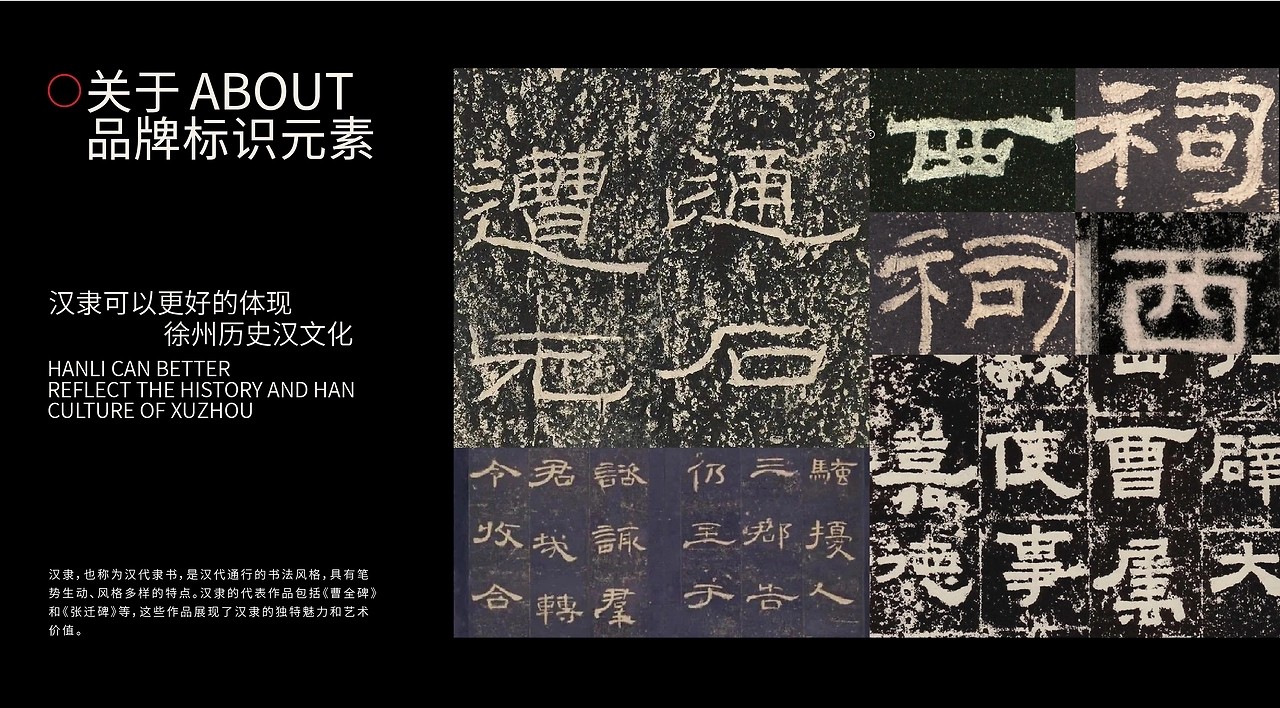 关于 ABOUT
品牌标识元素
汉隶可以更好的体现
徐州历史汉文化
HANLI CAN BETTER
REFLECT THE HISTORY AND HAN
CULTURE OF XUZHOU
汉隶,也称为汉代隶书,是汉代通行的书法风格,具有笔
势生动、风格多样的特点。汉隶的代表作品包括《曹全碑》
和《张迁碑》等,这些作品展现了汉隶的独特魅力和艺术
价值。
遭 通
石
西 祠
祠 西
令 君 仍 三 騷
收 諏 至 郡 擾
合 轉 羣 子 告 人
使 曹
德 事 属 大